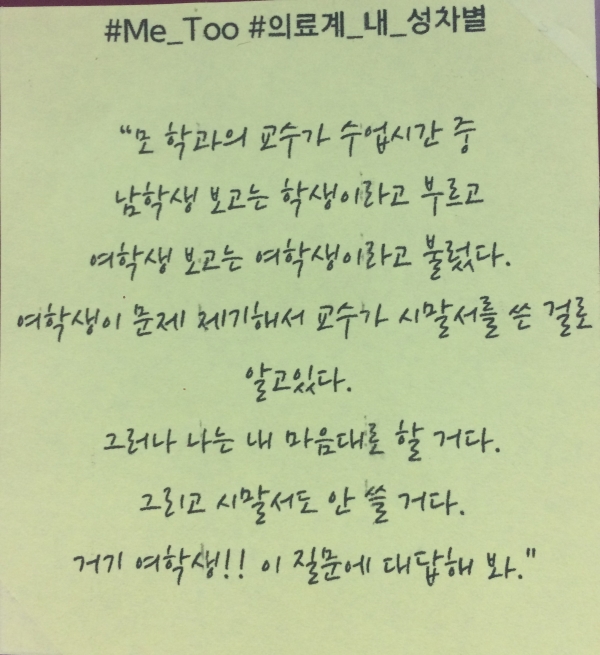 #Me_Too #의료계_내_성차별
“모 학과의 교수가 수업시간 중
남학생 보고는 학생이라고 부르고
여학생 보고는 여학생이라고 불렀다.
여학생이 문제 제기해서 교수가 시말서를 쓴 걸로
알고있다.
그러나 나는 내 마음대로 할 거다.
그리고 시말서도 안 쓸 거다.
거기 여학생!! 이 질문에 대답해 봐."